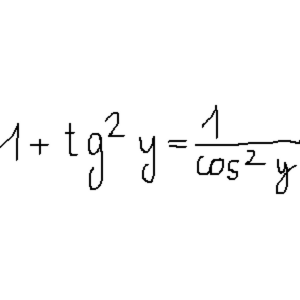 1 + tg² y = 1/cos² y